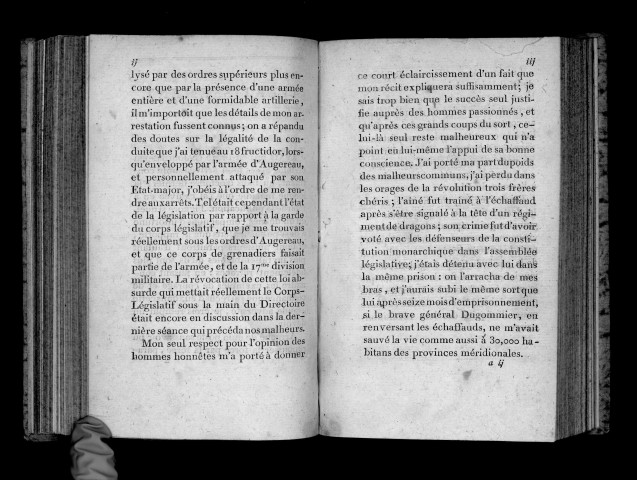 ij
lysé par des ordres supérieurs plus en-
core que par la présence d'une armée
entière et d'une formidable artillerie,
il m'importoit que les détails de mon ar-
restation fussent connus; on a répandu
des doutes sur la légalité de la con-
duite que j'ai tenue au 18 fructidor, lors-
qu'enveloppé par l'armée d'Augereau,
et personnellement attaqué par son
Etat-major, j'obéis à l'ordre de me ren-
dre aux arrêts. Tel était cependant l'état
de la législation par rapport à la garde
du corps législatif, que je me trouvais
réellement sous les ordres d'Augereau,
et que ce corps de grenadiers faisait
partie de l'armée, et de la 17me division
militaire. La révocation de cette loi ab-
surde qui mettait réellement le Corps-
Législatif sous la main du Directoire
était encore en discussion dans la der-
nière séance qui précéda nos malheurs.
Mon seul respect pour l'opinion des
hommes honnêtes m'a porté à donner
iij
ce court éclaircissement d'un fait que
mon récit expliquera suffisamment; je
sais trop bien que le succès seul justi-
fie auprès des hommes passionnés, et
qu'après ces grands coups du sort, ce-
lui-là seul reste malheureux qui n'a
point en lui-même l'appui de sa bonne
conscience. J'ai porté ma part du poids
des malheurs communs, j'ai perdu dans
les orages de la révolution trois frères
chéris; l'aîné fut traîné à l'échaffaud
après s'être signalé à la tête d'un régi-
ment de dragons; son crime fut d'avoir
voté avec les défenseurs de la consti-
tution monarchique dans l'assemblée
législative; j'étais détenu avec lui dans
la même prison: on l'arracha de mes
bras, et j'aurais subi le même sort que
lui après seize mois d'emprisonnement,
si le brave général Dugommier, en
renversant les échaffauds, ne m'avait
sauvé la vie comme aussi à 30,000 ha-
bitans des provinces méridionales.
a ij